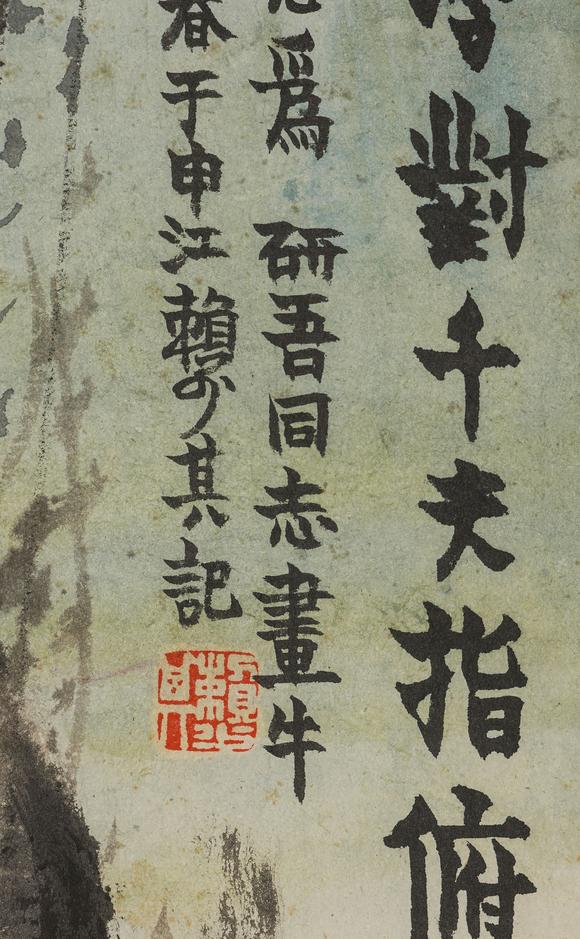 對千夫指俯
爲 研吾同志畫牛
春于申江賴少其記